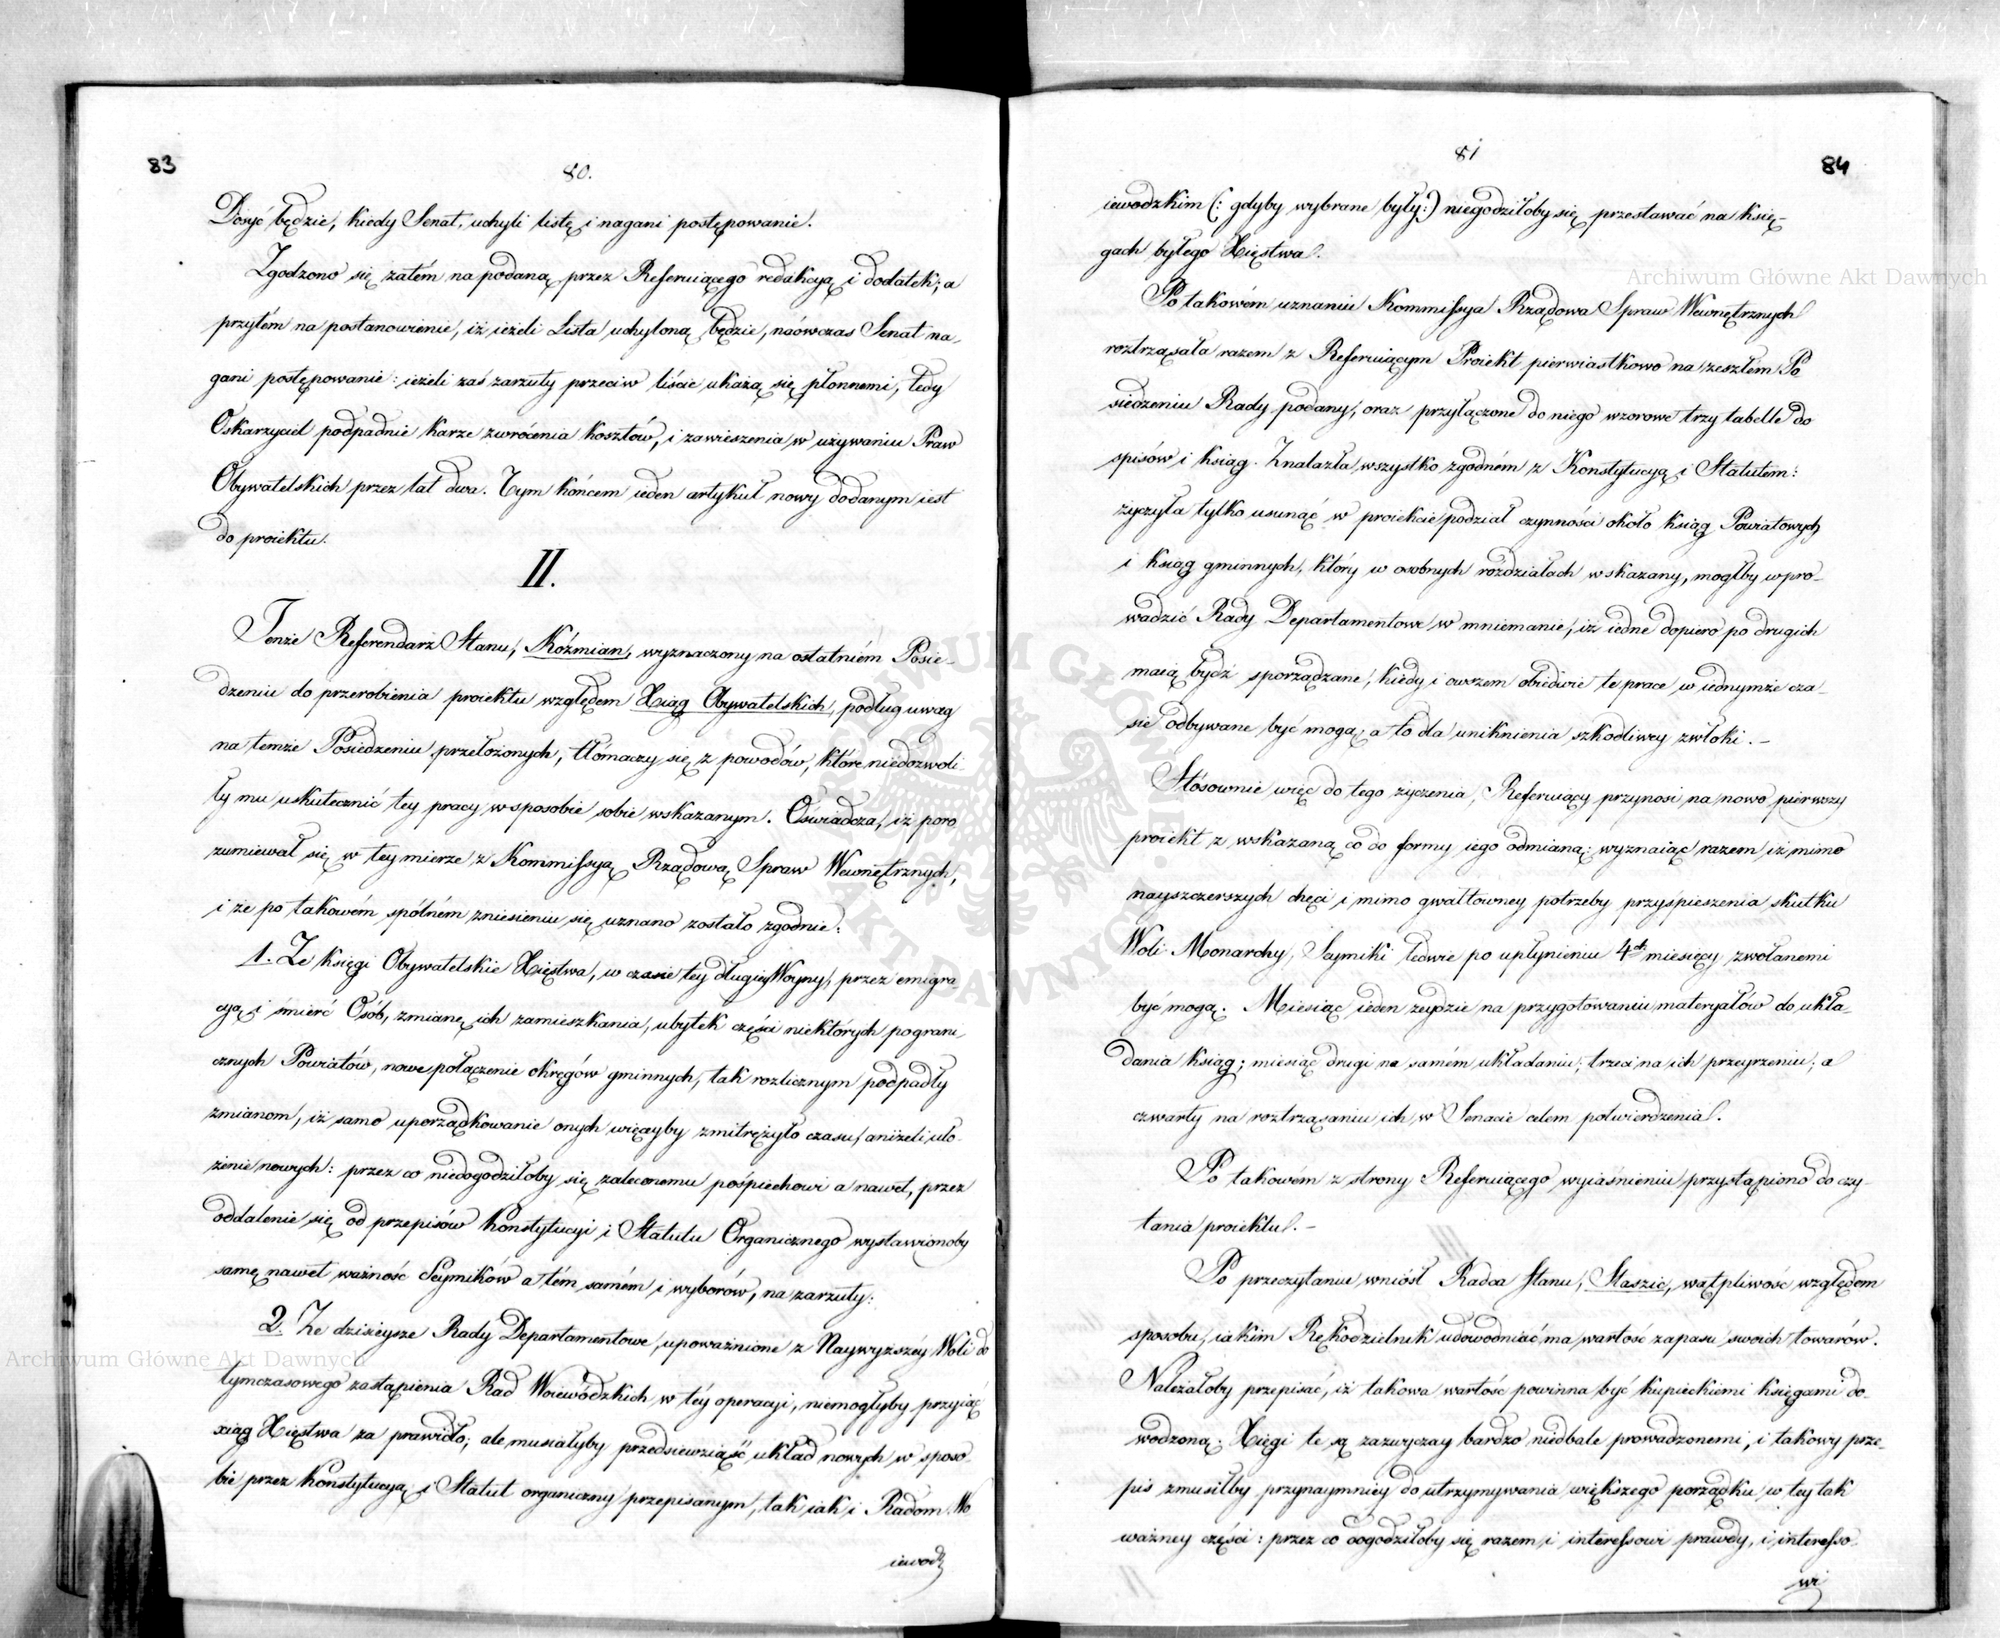 83
80.
Dosyć będzie, kiedy Senat, uchyli listę i nagani postępowanie.
Zgodzono się zatém na podaną przez Referuiącego redakcyą i dodatek; a
przytém na postanowienie, iż ieżeli Lista uchyloną będzie, naówczas Senat na-
gani postępowanie: ieżeli zaś zarzuty przeciw liście ukażą się płonnemi, tedy
Oskarzyciel podpadnie karze zwrócenia kosztów, i zawieszenia w używaniu Praw
Obywatelskich przez lat dwa. Tym końcem ieden artykuł nowy dodanym iest
do proiektu.
II.
Tenże Referendarz Stanu, Koźmian, wyznaczony na ostatniém Posie-
dzeniu do przerobienia proiektu względem Xiąg Obywatelskich, podług uwag
na temże Posiedzeniu przełożonych, tłómaczy się z powodów, które niedozwoli-
ły mu uskutecznić tey pracy w sposobie sobie wskazanym. Oświadcza, iż poro
zumiewał się w tey mierze z Kommissyą Rządową Spraw Wewnętrznych,
i że po takowém spólném zniesieniu się uznano zostało zgodnie:
1. Że księgi Obywatelskie Xięstwa, w czasie tey długiey Woyny, przez emigra-
cyą i śmierć Osób, zmianę ich zamieszkania, ubytek części niektórych pograni-
cznych Powiatów, nowe połączenie okręgów gminnych, tak rozlicznym podpadły
zmianom, iż samo uporządkowanie onych więcayby zmitrężyło czasu, aniżeli uło-
żenie nowych: przez co niedogodziłoby się zaleconemu pośpiechowi a nawet, przez
oddalenie się od przepisów Konstytucyi i Statutu Organicznego wystawionoby
samę nawet ważność Seymików a tém samém i wyborów, na zarzuty:
2. Że dzisieysze Rady Departamentowe, upoważnione z Naywyższéy Woli do
tymczasowego zastąpienia Rad Woiewódzkich w téy operacyi, niemogłyby przyiąć
xiąg Xięstwa za prawidło; ale musiałyby przedsięwziąść układ nowych w sposo-
bie przez Konstytucyą i Statut organiczny przepisanym, tak iak i Radom Wo
iewodz
81
84
iewodzkim (: gdyby wybrane były:) niegodziłoby się przestawać na księ-
gach byłego Xięstwa.
Po takowém uznaniu Kommissya Rządowa Spraw Wewnętrznych
roztrząsała razem z Referuiącym Proiekt pierwiastkowo na zeszłem Po
siedzeniu Rady podany, oraz przyłączone do niego wzorowe trzy tabelle do
spisów i ksiąg. Znalazła wszystko zgodném z Konstytucyą i Statutem:
życzyła tylko usunąć w proiekcie podział czynności około ksiąg Powiatowych
i ksiąg gminnych, który w osobnych rozdziałach wskazany, mogłby wpro-
wadzić Rady Departamentowe w mniemanie, iż iedne dopiero po drugich
maią bydź sporządzane, kiedy i owszem obiedwie te prace w iednymże cza-
sie odbywane być mogą; a to dla uniknienia szkodliwey zwłoki. -
Stósownie więc do tego życzenia, Referuiący przynosi na nowo pierwszy
proiekt z wskazaną co do formy iego odmianą: wyznaiąc razem iż mimo
nayszczerszych chęci i mimo gwałtowney potrzeby przyśpieszenia skutku
Woli Monarchy, Saymiki ledwie po upłynieniu 4ch miesięcy zwołanemi
być mogą. Miesiąc ieden zeydzie na przygotowaniu materyałów do ukła-
dania ksiąg; miesiąc drugi na samém układaniu; trzeci na ich przeyrzeniu; a
czwarty na roztrząsaniu ich w Senacie celem potwierdzenia.
Po takowém z strony Referuiącego wyiaśnieniu przystąpiono do czy-
tania proiektu. -
Po przeczytaniu wniósł Radca Stanu, Staszic, wątpliwość względem
sposobu, iakim Rękodzielnik udowodniać ma wartość zapasu swoich towarów.
Należałoby przepisać, iż takowa wartość powinna być kupieckiemi księgami do-
wodzoną; Xięgi te są zazwyczay bardzo niedbale prowadzonemi, i takowy prze-
pis zmusiłby przynaymniey do utrzymywania większego porządku w tey tak
ważney części: przez co dogodziłoby się razem i interessowi prawdy, i interesso-
wi
Archiwum Główne Akt Dawnych
Archiwum Główne Akt Dawnych
ARCHIWUM GŁÓWNE AKT DAWNYCH